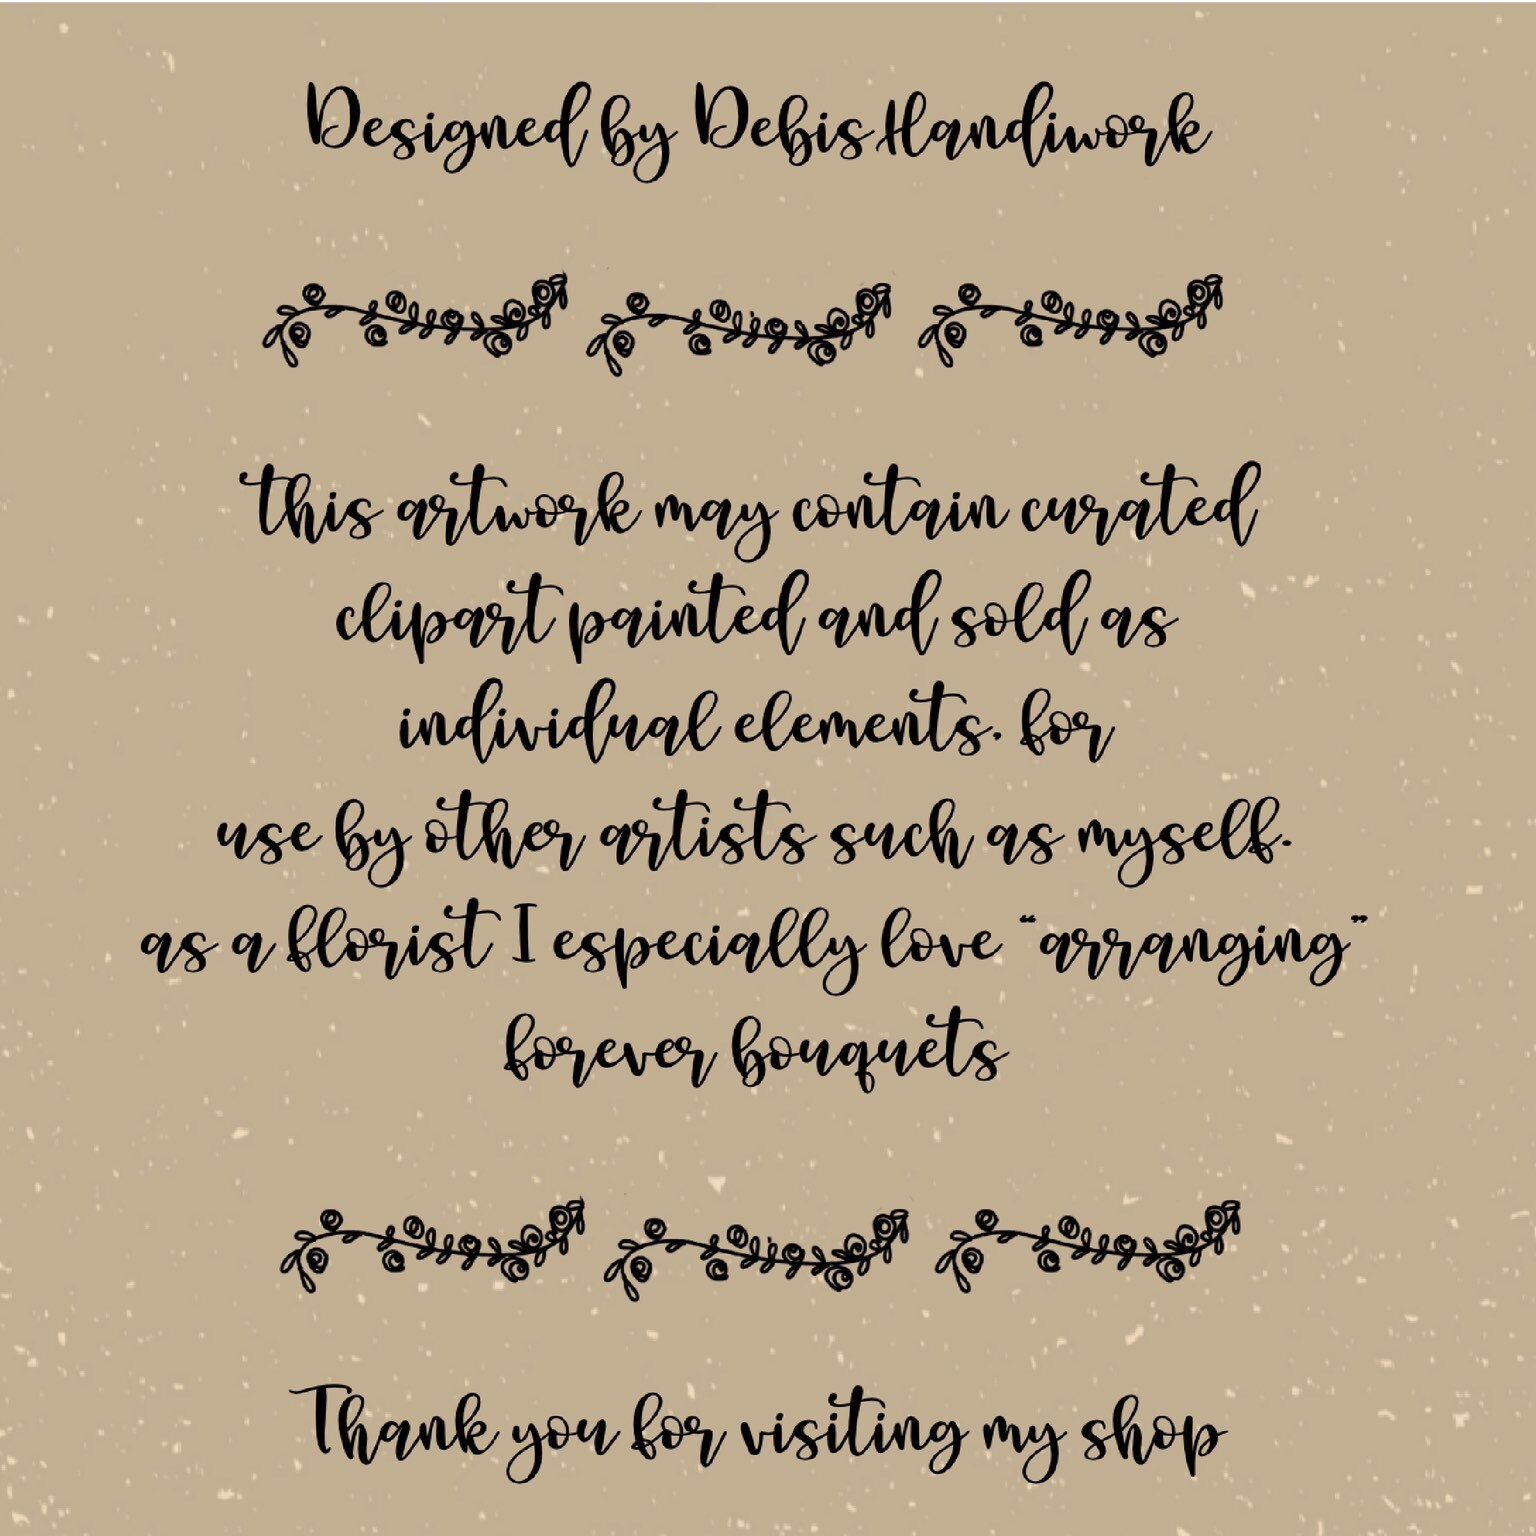 Designed by DebisHandiwork
this artwork may contain curated
clipart painted and sold as
individual elements. for
use by other artists such as myself.
as a florist I especially love “arranging”
forever bouquets
Thank you for visiting my shop